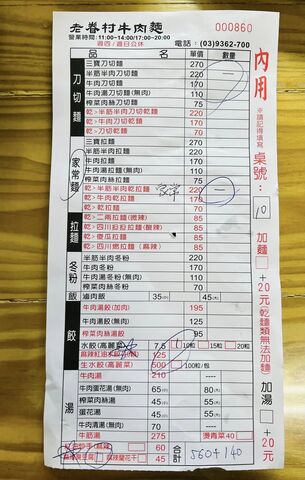 老眷村牛肉麵
000860
營業時間:11:00~14:00/17:00~20:00
週四/週日公休 電話:(03)9362-700
內用
※請記得填寫
桌號:
10
加麵 +20元
乾麵類無法加麵
加湯 +20元
品名 單價 數量
刀切麵
三寶刀切麵 270
半筋半肉刀切麵 220 一
牛肉刀切麵 170
牛肉湯刀切麵(無肉) 110
榨菜肉絲刀切麵 75
乾>半筋半肉刀切乾麵 220
乾>牛肉刀切乾麵 170
乾>刀切乾麵 70
家常麵
三寶拉麵 270
半筋半肉拉麵 220
牛肉拉麵 170
牛肉湯拉麵(無肉) 110
榨菜肉絲拉麵 75
乾>半筋半肉乾拉麵 220 一
家常
乾>牛肉乾拉麵 170
乾>乾拉麵 70
拉麵
乾>二兩拉麵(微辣) 85
乾>四川担担拉麵(酸辣) 85
乾>傻瓜拉麵 85
乾>四川燃拉麵(麻辣) 85
冬粉
半筋半肉冬粉 220
牛肉冬粉 170
牛肉湯冬粉(無肉) 110
榨菜肉絲冬粉 75
飯
滷肉飯 35(小) 45(大)
餃
牛肉湯餃(加肉) 195
牛肉湯餃(無肉) 125
榨菜肉絲湯餃 95
水餃(高麗菜) 7.5 10粒 15粒 20粒
麻辣紅油水餃 125
生水餃(高麗菜) 500 100粒/包
湯
牛肉湯 210
牛肉蛋花湯(無肉) 65(小) 80(大)
榨菜肉絲湯 45(小) 55(大)
蛋花湯 45(小) 55(大)
牛肉湯(無肉) 65(小) 75(大)
牛筋湯 275 燙青菜40
60
麻辣臭豆腐 麻辣蘭花干 45
合計
560+140